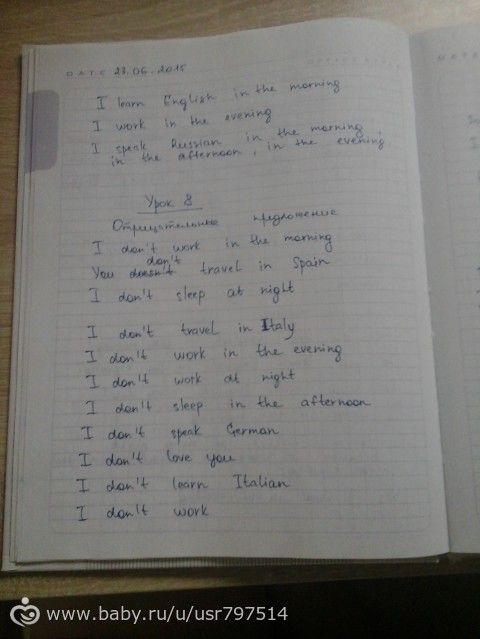 DATE 23.06.2015
I learn English in the morning
I work in the evening
I speak Russian in the morning,
in the afternoon, in the evening
Урок 8
Отрицательные предложение
I don't work in the morning
don't
You doesn't travel in Spain
I don't sleep at night
I don't travel in Italy
I don't work in the evening
I don't work at night
I don't sleep in the afternoon
I don't speak German
I don't love you
I don't learn Italian
I don't work
www.baby.ru/u/usr797514